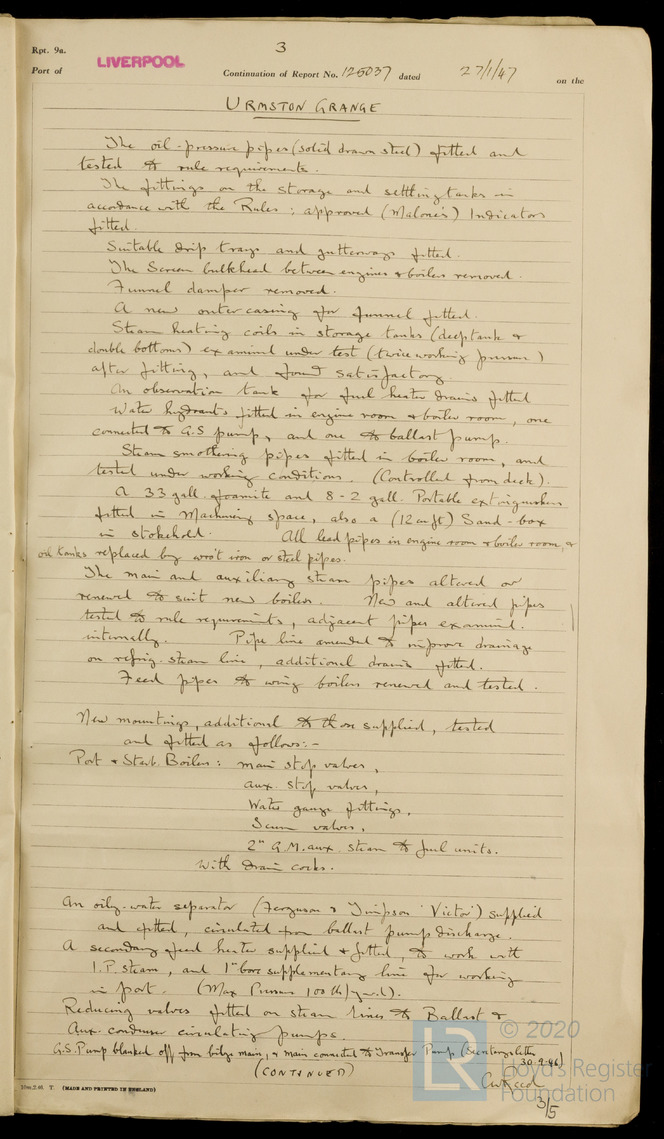 Rpt. 9a.
3
Port of LIVERPOOL Continuation of Report No. 125037 dated 27/1/47 on the
URMSTON GRANGE
The oil-pressure pipes (solid drawn steel) fitted and
tested to rule requirements.
The fittings on the storage and settling tanks in
accordance with the Rules : approved (Malone's) Indicators
fitted.
Suitable drip trays and gutterways fitted.
The Screen bulkhead between engines & boilers removed.
Funnel damper removed.
A new outer casing for funnel fitted.
Steam heating coils in storage tanks (deep tank &
double bottoms) examined under test (twice working pressure)
after fitting, and found satisfactory.
An observation tank for fuel heater drains fitted
Water hydrants fitted in engine room & boiler room, one
connected to G.S pump, and one to ballast pump.
Steam smothering pipes fitted in boiler room, and
tested under working conditions. (Controlled from deck).
A 33 gall. foamite and 8 - 2 gall. Portable extinguishers
fitted in Machinery space, also a (12 cu ft) Sand-box
in stokehold. All lead pipes in engine room & boiler room, &
oil tanks replaced by wro't iron or steel pipes.
The main and auxiliary steam pipes altered or
renewed to suit new boilers. New and altered pipes
tested to rule requirements, adjacent pipes examined
internally. Pipe line amended to improve drainage
on refrig. steam line, additional drains fitted.
Feed pipes to wing boilers renewed and tested.
New mountings, additional to those supplied, tested
and fitted as follows:-
Port & Starb. Boilers : main stop valves,
aux. stop valves,
Water gauge fittings,
Scum valves,
2" G.M. aux. steam to fuel units.
With drain cocks.
An oily-water separator (Ferguson & Timpson 'Victor') supplied
and fitted, circulated from ballast pump discharge.
A secondary feed heater supplied & fitted, to work with
I.P. steam, and 1" bore supplementary line for working
in port. (Max Pressure 100 lb/
Reducing valves fitted on steam lines to Ballast &
Aux. condenser circulating pumps.
G.S. Pump blanked off from bilge main, & main connected to Transfer Pump (Secretary's letter
30.9.46)
(CONTINUED)
3/5
10m,2.46. T. (MADE AND PRINTED IN ENGLAND)
LR
© 2020
Lloyd's Register
Foundation